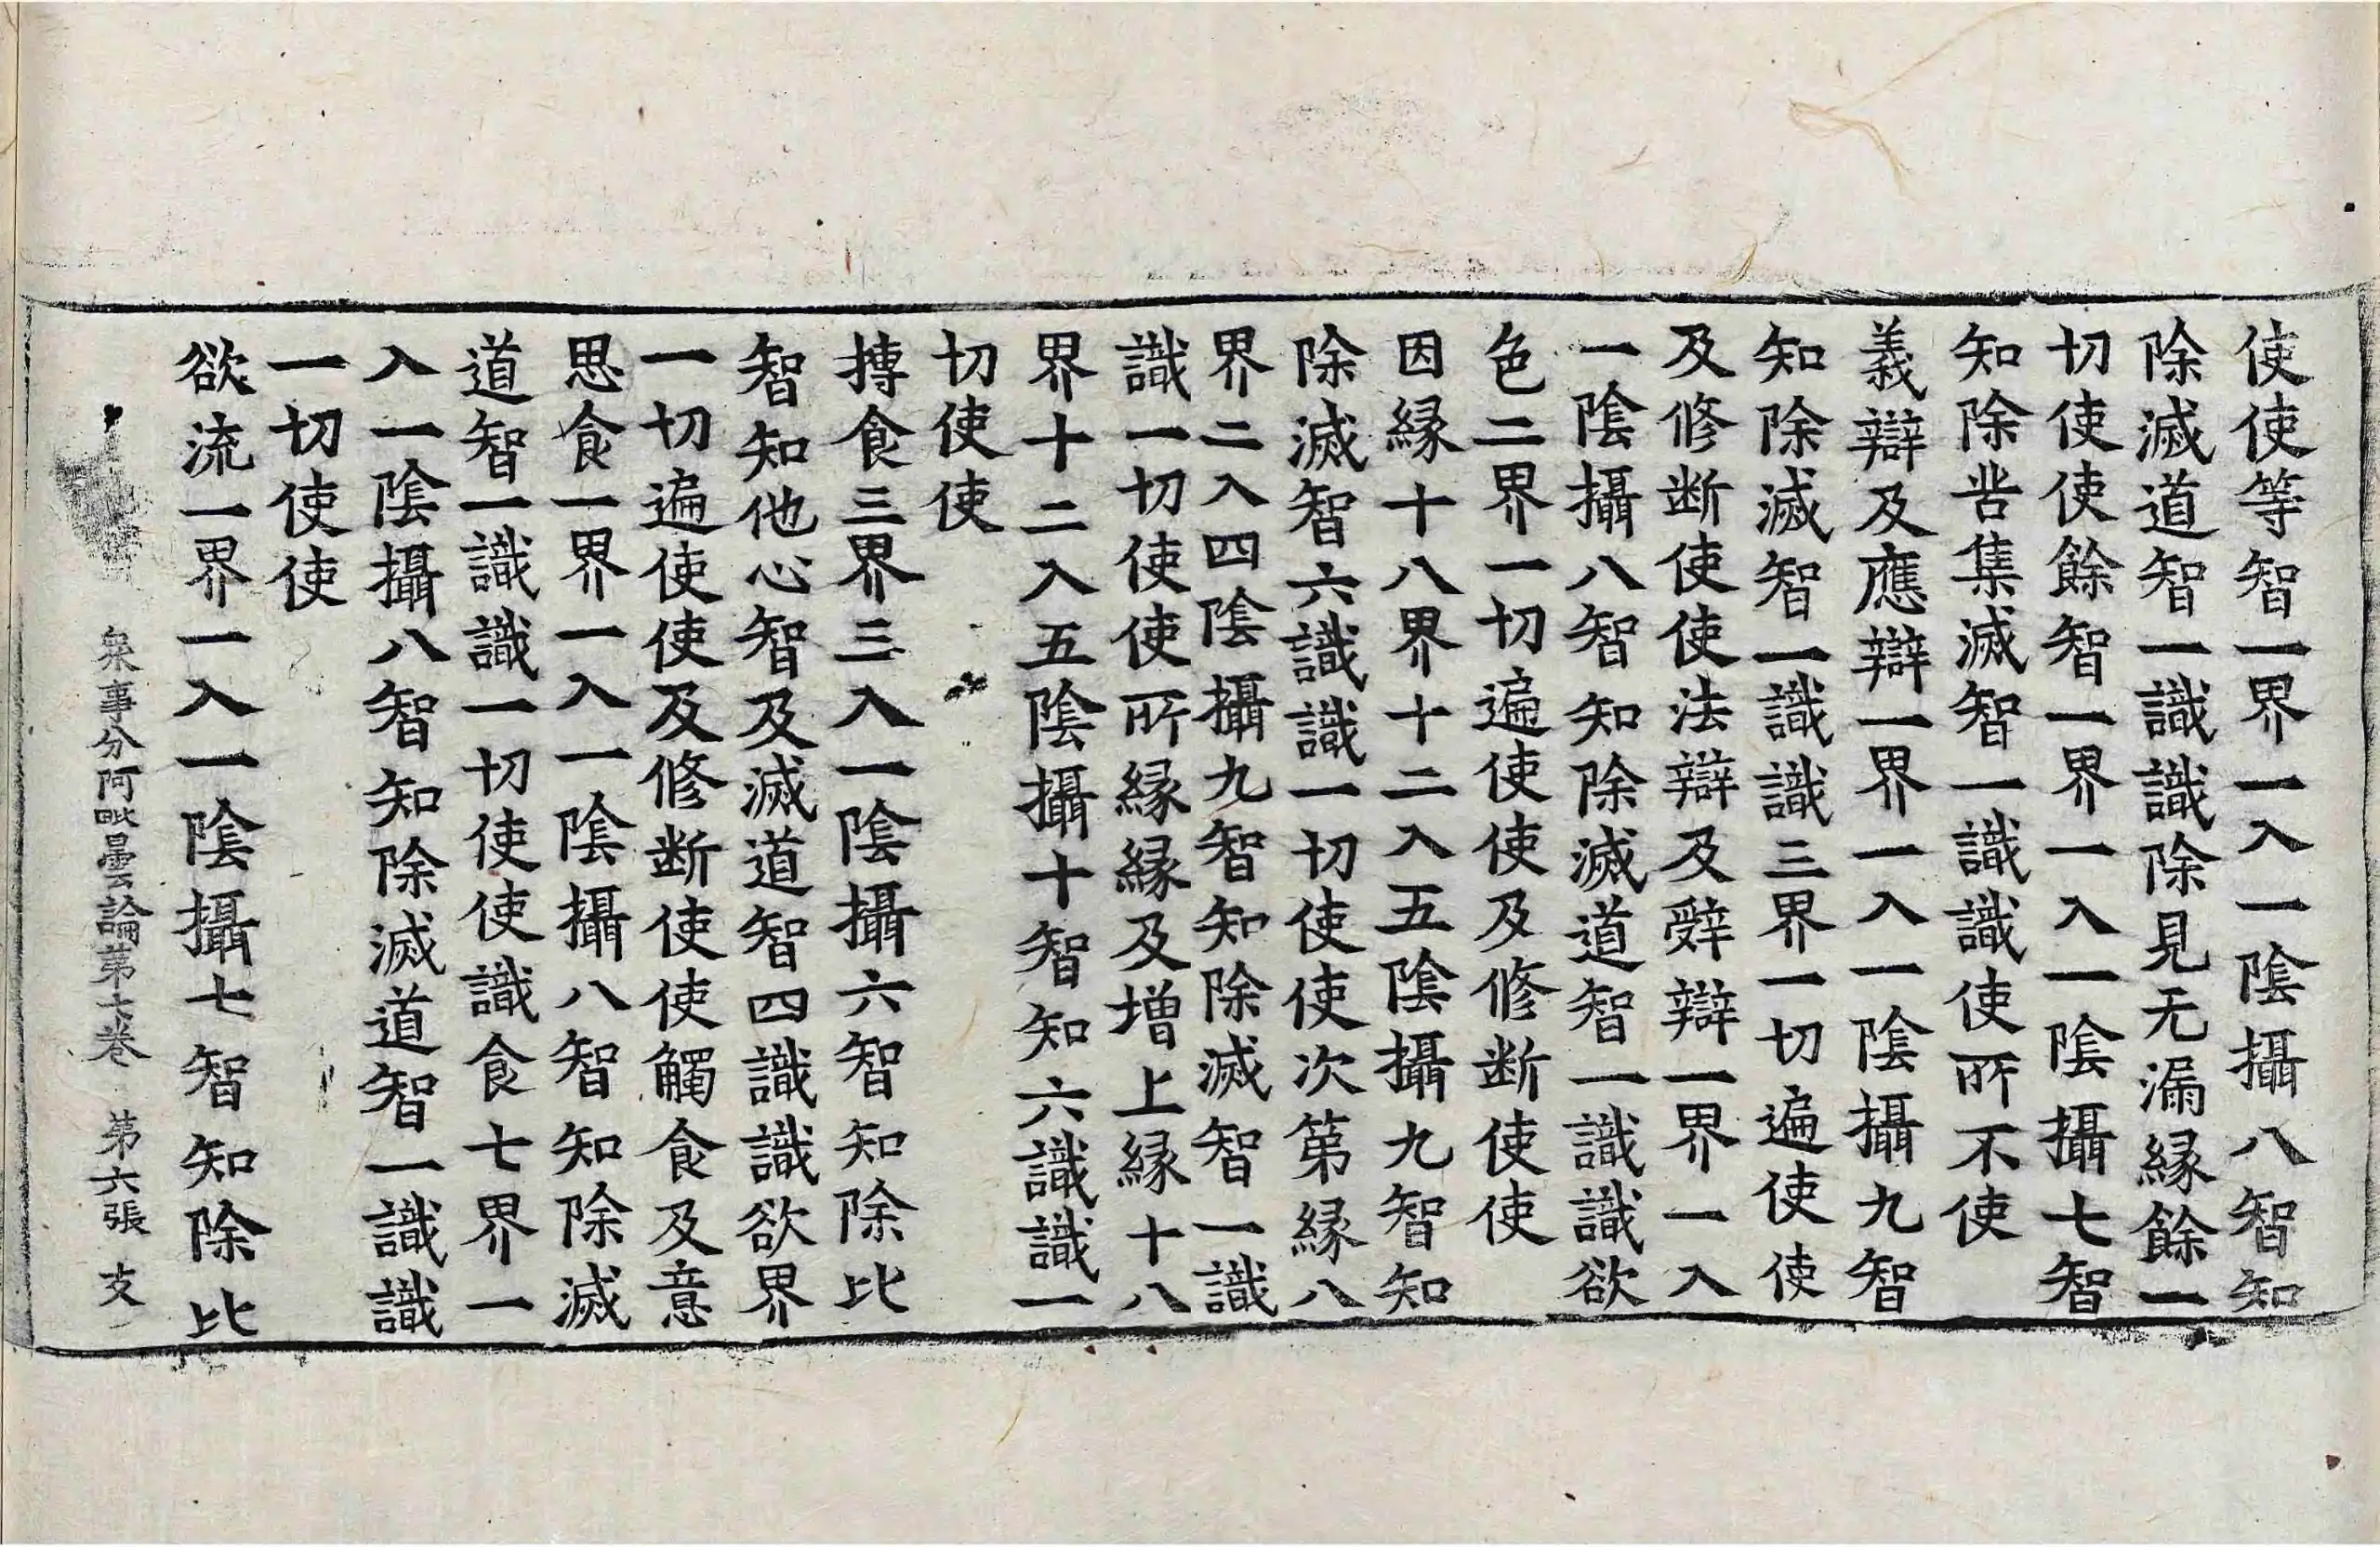 使使等智一界一入一陰攝八智知
除滅道智一識識除見无漏縁餘一
切使使餘智一界一入一陰攝七智
知除苦集滅智一識識使所不使
義辯及應辯一界一入一陰攝九智
知除滅智一識識三界一切遍使使
及修断使使法辯及辤辯一界一入
一陰攝八智知除滅道智一識識欲
色二界一切遍使使及修断使使
因縁十八界十二入五陰攝九智知
除滅智六識識一切使使次第縁八
界二入四陰攝九智知除滅智一識
識一切使使所縁縁及增上縁十八
界十二入五陰攝十智知六識識一
切使使
摶食三界三入一陰攝六智知除比
智知他心智及滅道智四識識欲界
一切遍使使及修断使使觸食及意
思食一界一入一陰攝八智知除滅
道智一識識一切使使識食七界一
入一陰攝八智知除滅道智一識識
一切使使
欲流一界一入一陰攝七智知除比
衆事分阿毗曇論第七卷 第六張 支